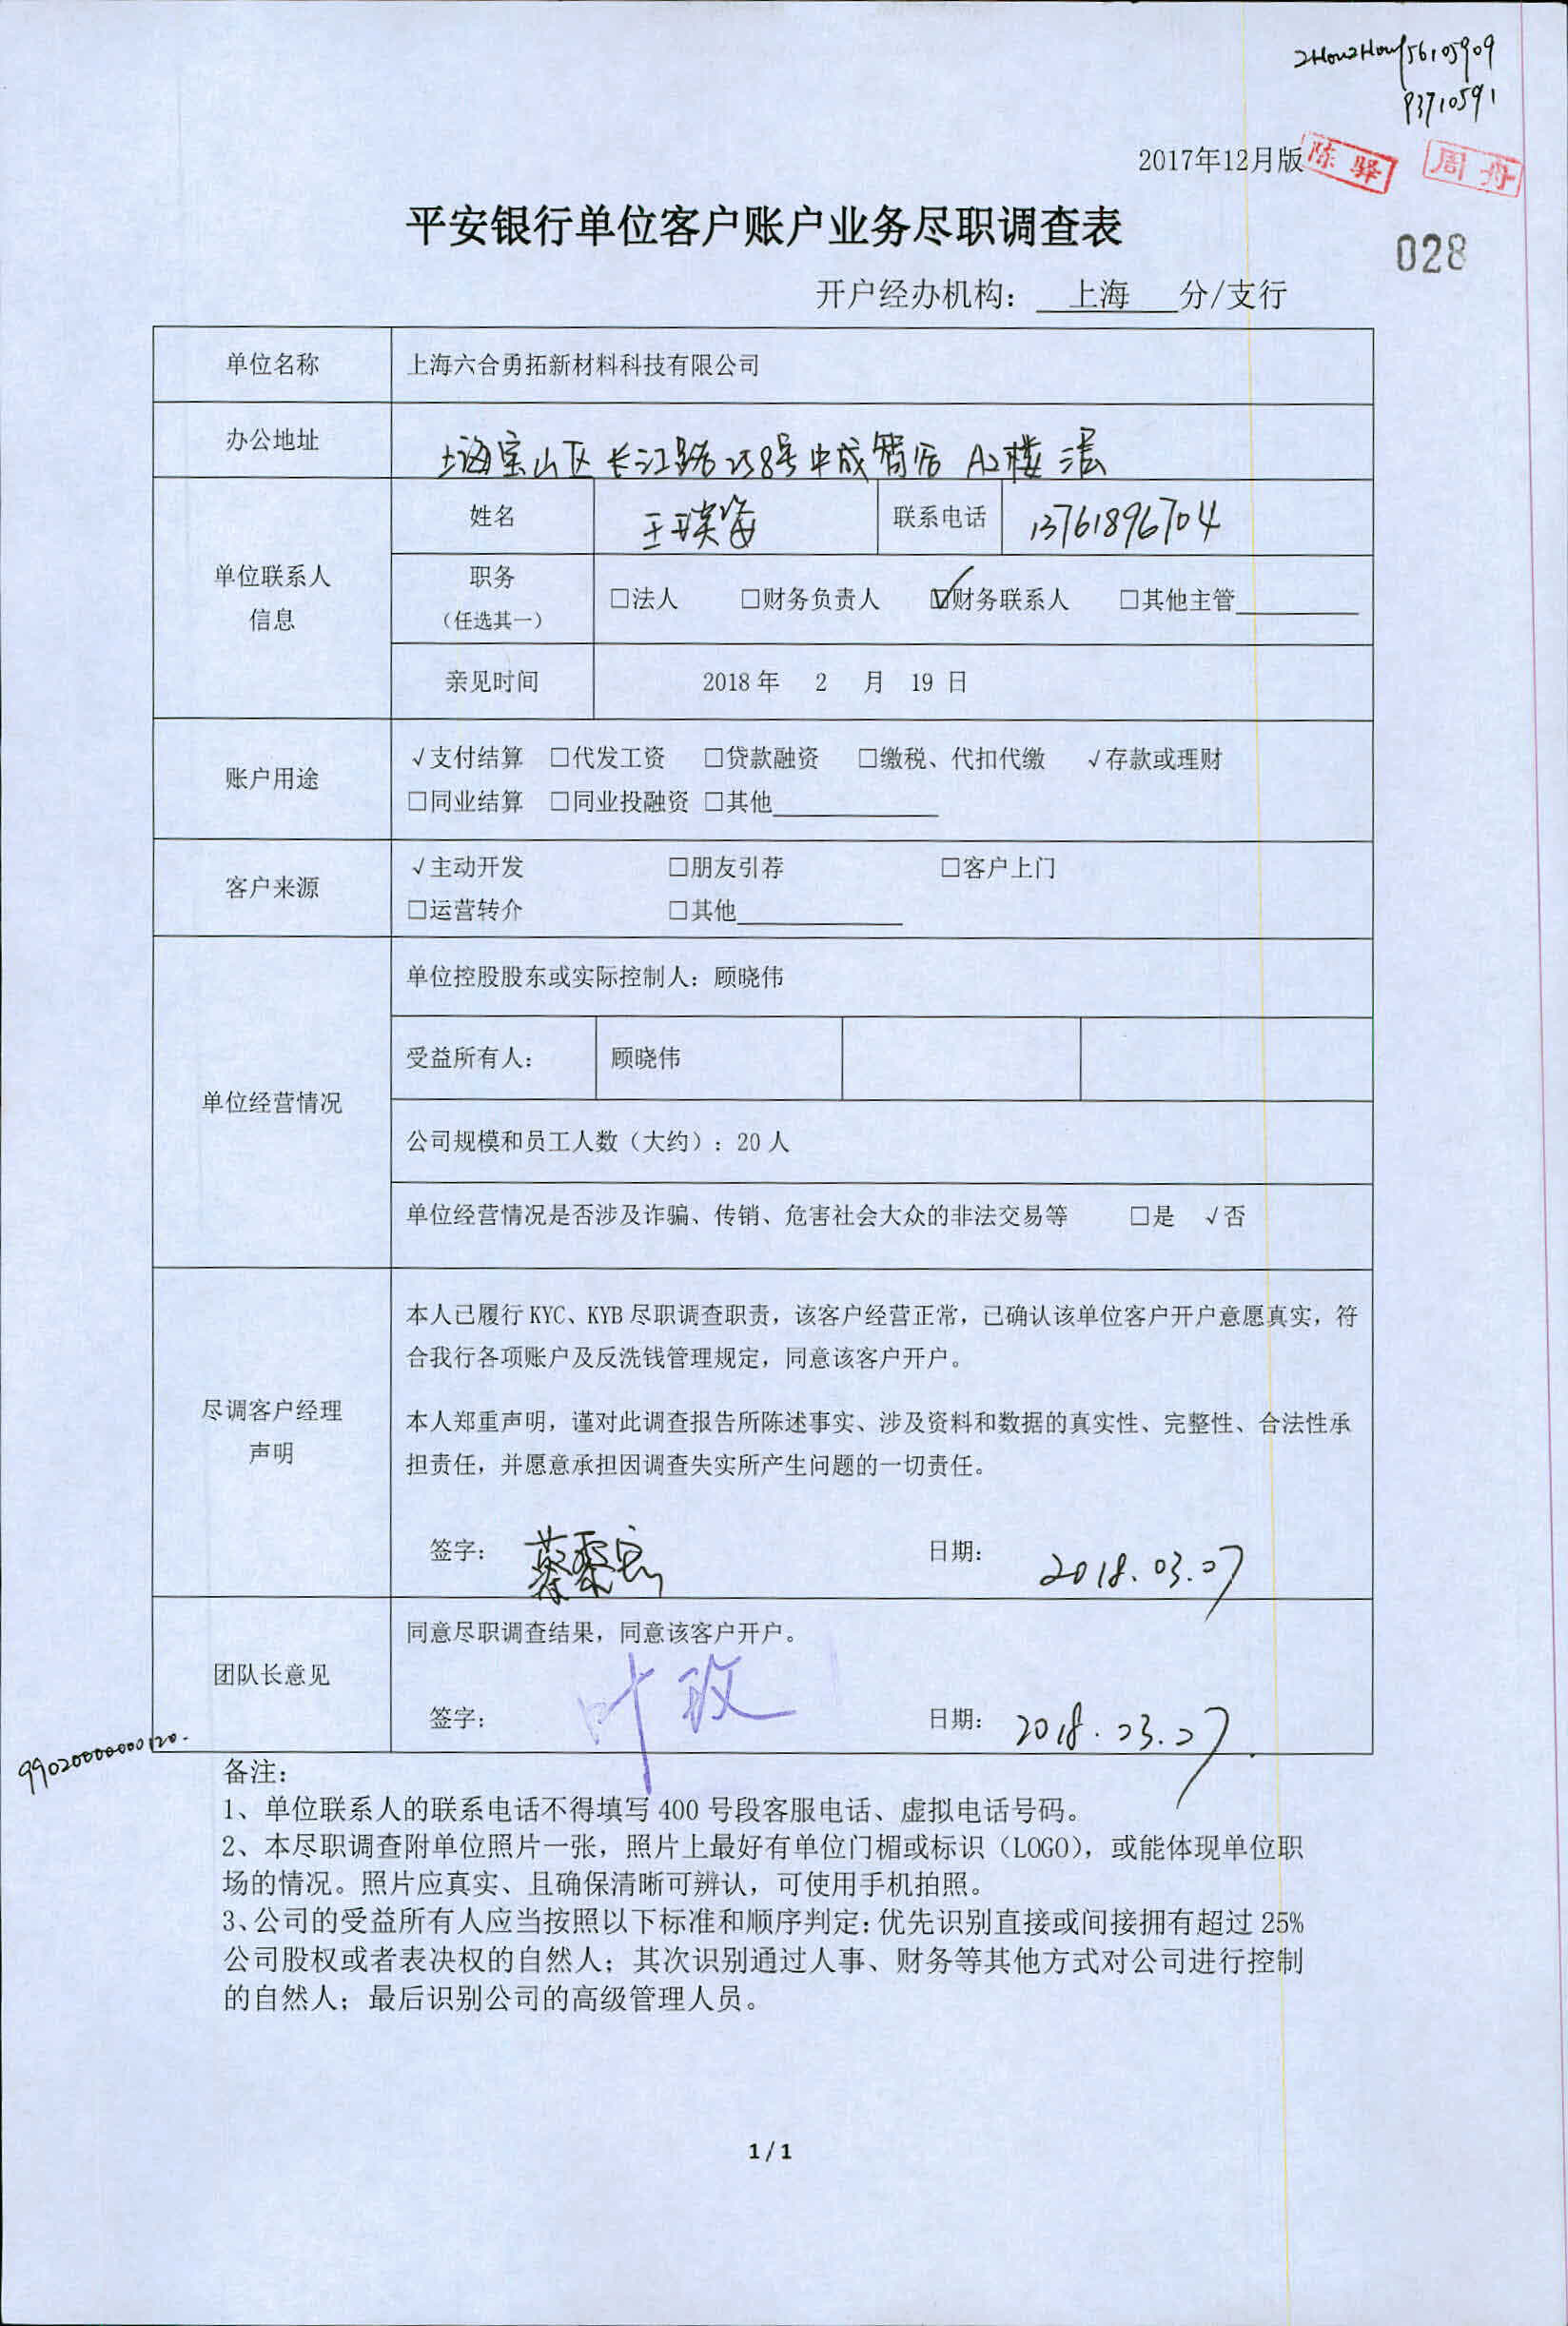 56105909
93710591
2017年12月版
陈驿
周丹
平安银行单位客户账户业务尽职调查表
028
开户经办机构： 上海 分/支行
单位名称 上海六合勇拓新材料科技有限公司
办公地址 上海宝山区长江路258号中成智谷A2楼 层
单位联系人信息 姓名 王瑛海 联系电话 13761896704
职务（任选其一） □法人 □财务负责人 ☑财务联系人 □其他主管
亲见时间 2018年 2 月 19 日
账户用途 √支付结算 □代发工资 □贷款融资 □缴税、代扣代缴 √存款或理财
□同业结算 □同业投融资 □其他
客户来源 √主动开发 □朋友引荐 □客户上门
□运营转介 □其他
单位经营情况 单位控股股东或实际控制人：顾晓伟
受益所有人： 顾晓伟
公司规模和员工人数（大约）：20人
单位经营情况是否涉及诈骗、传销、危害社会大众的非法交易等 □是 √否
尽调客户经理声明
本人已履行KYC、KYB尽职调查职责，该客户经营正常，已确认该单位客户开户意愿真实，符
合我行各项账户及反洗钱管理规定，同意该客户开户。
本人郑重声明，谨对此调查报告所陈述事实、涉及资料和数据的真实性、完整性、合法性承
担责任，并愿意承担因调查失实所产生问题的一切责任。
签字： 日期： 2018.03.27
团队长意见
同意尽职调查结果，同意该客户开户。
签字： 叶玫 日期： 2018.03.27
备注：
1、单位联系人的联系电话不得填写400号段客服电话、虚拟电话号码。
2、本尽职调查附单位照片一张，照片上最好有单位门楣或标识（LOGO），或能体现单位职
场的情况。照片应真实、且确保清晰可辨认，可使用手机拍照。
3、公司的受益所有人应当按照以下标准和顺序判定：优先识别直接或间接拥有超过25%
公司股权或者表决权的自然人；其次识别通过人事、财务等其他方式对公司进行控制
的自然人；最后识别公司的高级管理人员。
1/1